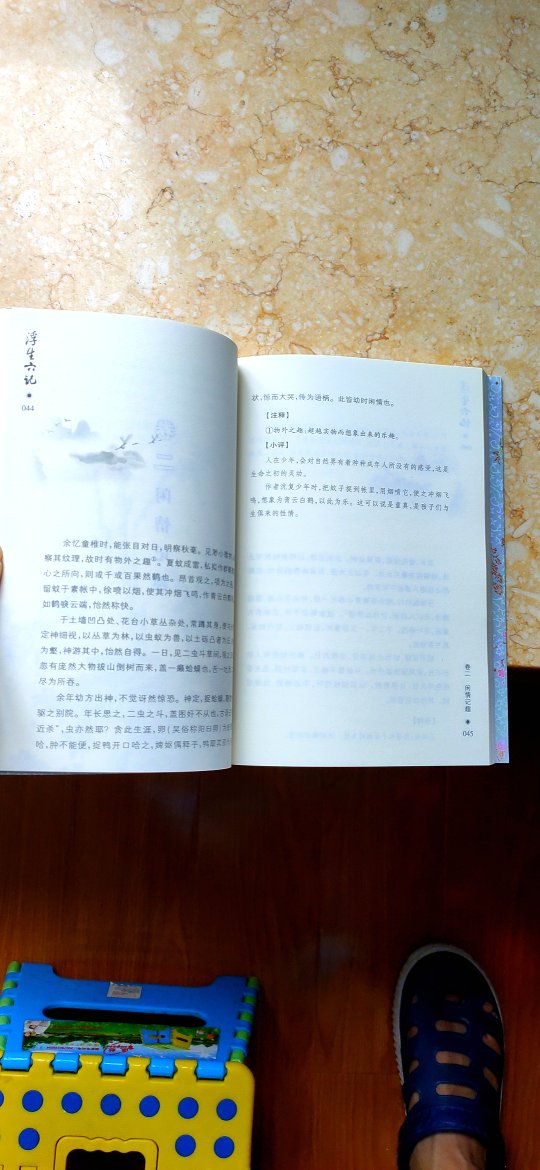 浮生六记
044
余忆童稚时，能张目对日，明察秋毫。见渺小微
察其纹理，故时有物外之趣①。夏蚊成雷，私拟作群鹤
心之所向，则或千或百果然鹤也。昂首观之，项为之
留蚊于素帐中，徐喷以烟，使其冲烟飞鸣，作青云白鹤
如鹤唳云端，怡然称快。
于土墙凹凸处、花台小草丛杂处，常蹲其身，使与
定神细视，以丛草为林，以虫蚁为兽，以土砾凸者为丘
为壑，神游其中，怡然自得。一日，见二虫斗草间，观之
忽有庞然大物拔山倒树而来，盖一癞蛤蟆也，舌一吐
尽为所吞。
余年幼方出神，不觉讶然惊恐。神定，捉蛤蟆，鞭
驱之别院。年长思之，二虫之斗，盖图奸不从也，古语
近杀”，虫亦然耶？贪此生涯，卵（吴俗称阳曰卵）为
哈，肿不能便，捉鸭开口哈之，婢妪偶释手，鸭颠其
状，惊而大哭，传为语柄。此皆幼时闲情也。
【注释】
①物外之趣：超越实物而想象出来的乐趣。
【小评】
人在少年，会对自然界有着种种成年人所没有的感受，这是
生命之初的灵动。
作者沈复少年时，把蚊子捉到帐里，用烟喷它，使之冲烟飞
鸣，想象为青云白鹤，以此为乐。这可以说是童真，是孩子们与
生俱来的性情。
卷二 闲情记趣
045